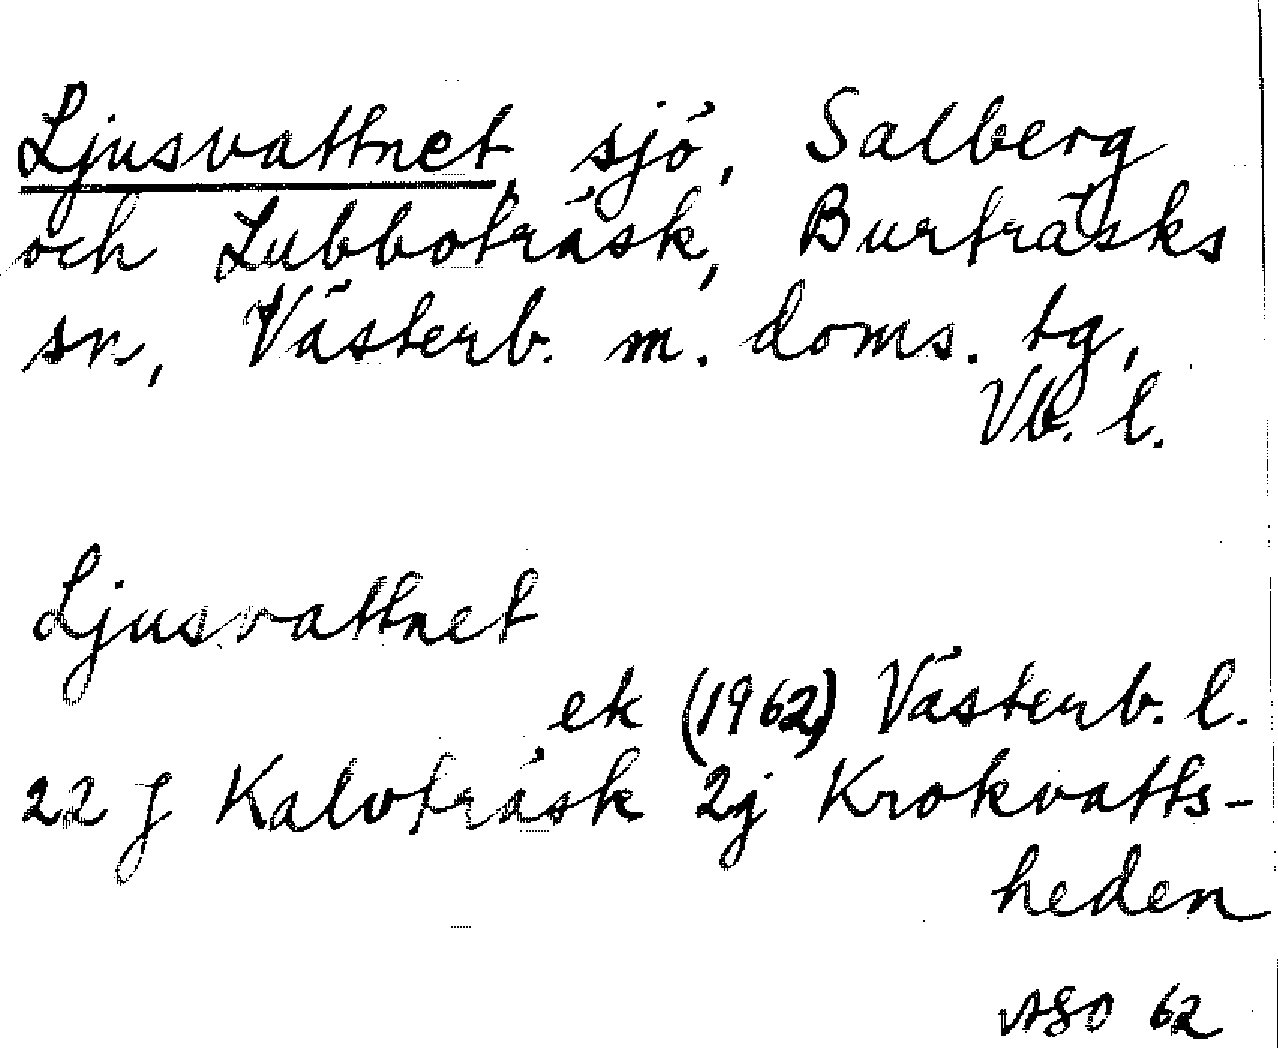 Ljusvattnet, sjö, Salberg
och Lubboträsk, Burträsks
sn, Västerb. m. doms. tg,
Vb. l.
Ljusvattnet
ek (1962) Västerb. l.
22 J Kalvträsk 2j Krokvatts-
heden
ASO 62